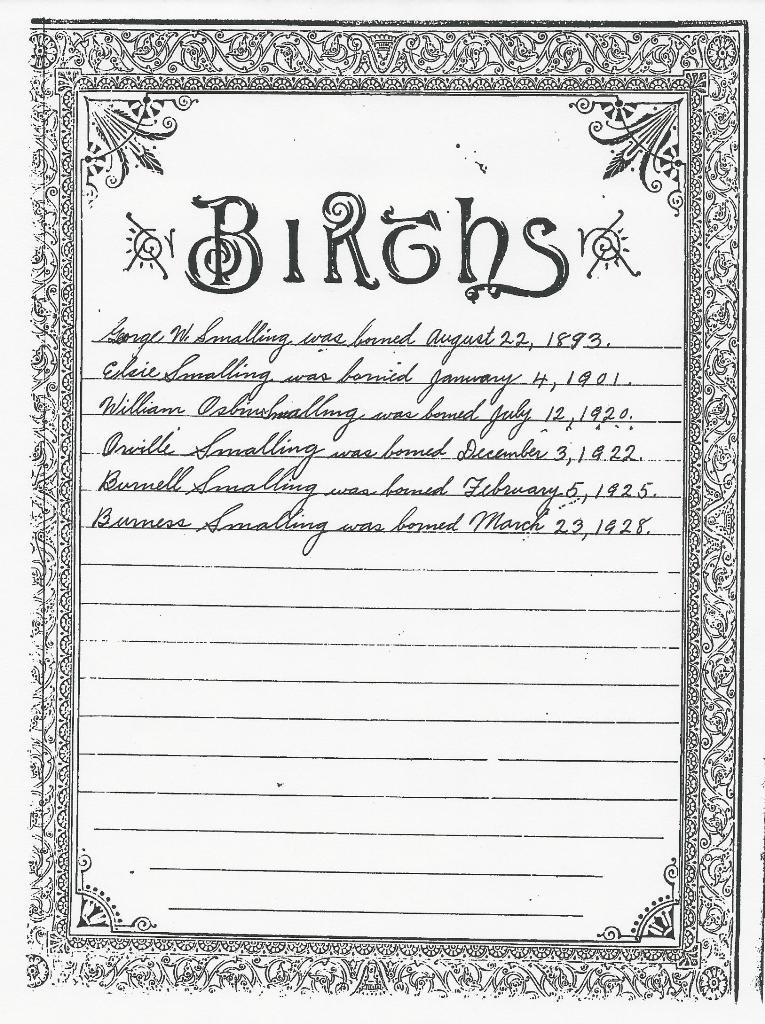 Births
George W. Smalling was borned August 22, 1893.
Elsie Smalling was borned January 4, 1901.
William Osbin Smalling was borned July 12, 1920.
Orville Smalling was borned December 3, 1922.
Burnell Smalling was borned February 5, 1925.
Burness Smalling was borned March 23, 1928.